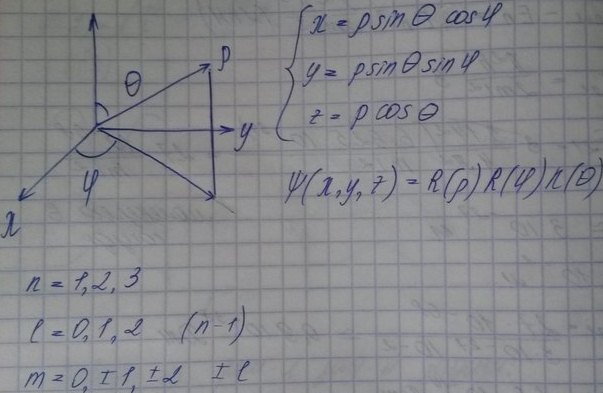 θ
ρ
y
φ
x
x = ρ sin θ cos φ
y = ρ sin θ sin φ
z = ρ cos θ
Ψ(x, y, z) = R(ρ) R(φ) R(θ)
n = 1, 2, 3
l = 0, 1, 2 (n-1)
m = 0, ±1, ±2 ±l